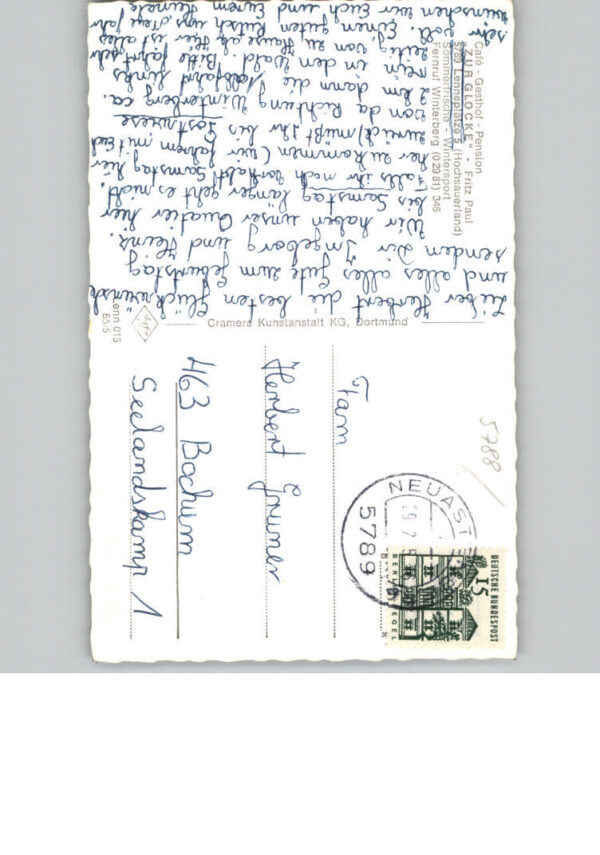 Café - Gasthof - Pension
"ZUR GLOCKE" - Fritz Paul
5789 Lenneplätze 5 (Hochsauerland)
Sommerfrische - Wintersport
Fernruf Winterberg (0 29 81) 346
Lieber Herbert die besten Glückwünsche
und alles alles Gute zum Geburtstag
senden Dir Ingeborg und Heinz.
Wir haben unser Quatier hier
bis Samstag länger geht es nicht.
Falls ihr noch vorhabt Samstag hier
her zu kommen (wir fahren mit Euch
zurück) müßt Ihr bis
von da Richtung Winterberg ca.
2 km dann die Waldfahrt links
rein in den Wald. Bitte fahrt sehr
zeitig von zu Hause ab. Hier ist alles
sehr voll. Einen guten Rutsch ins neue Jahr
wünschen wir Euch und Eurem
Cramers Kunstanstalt KG, Dortmund
Lenn 015
65/5
5788
NEUAST
5789
DEUTSCHE BUNDESPOST
15
BERLIN TEGEL
Fam
Herbert
463 Bochum
Seelandskamp 1